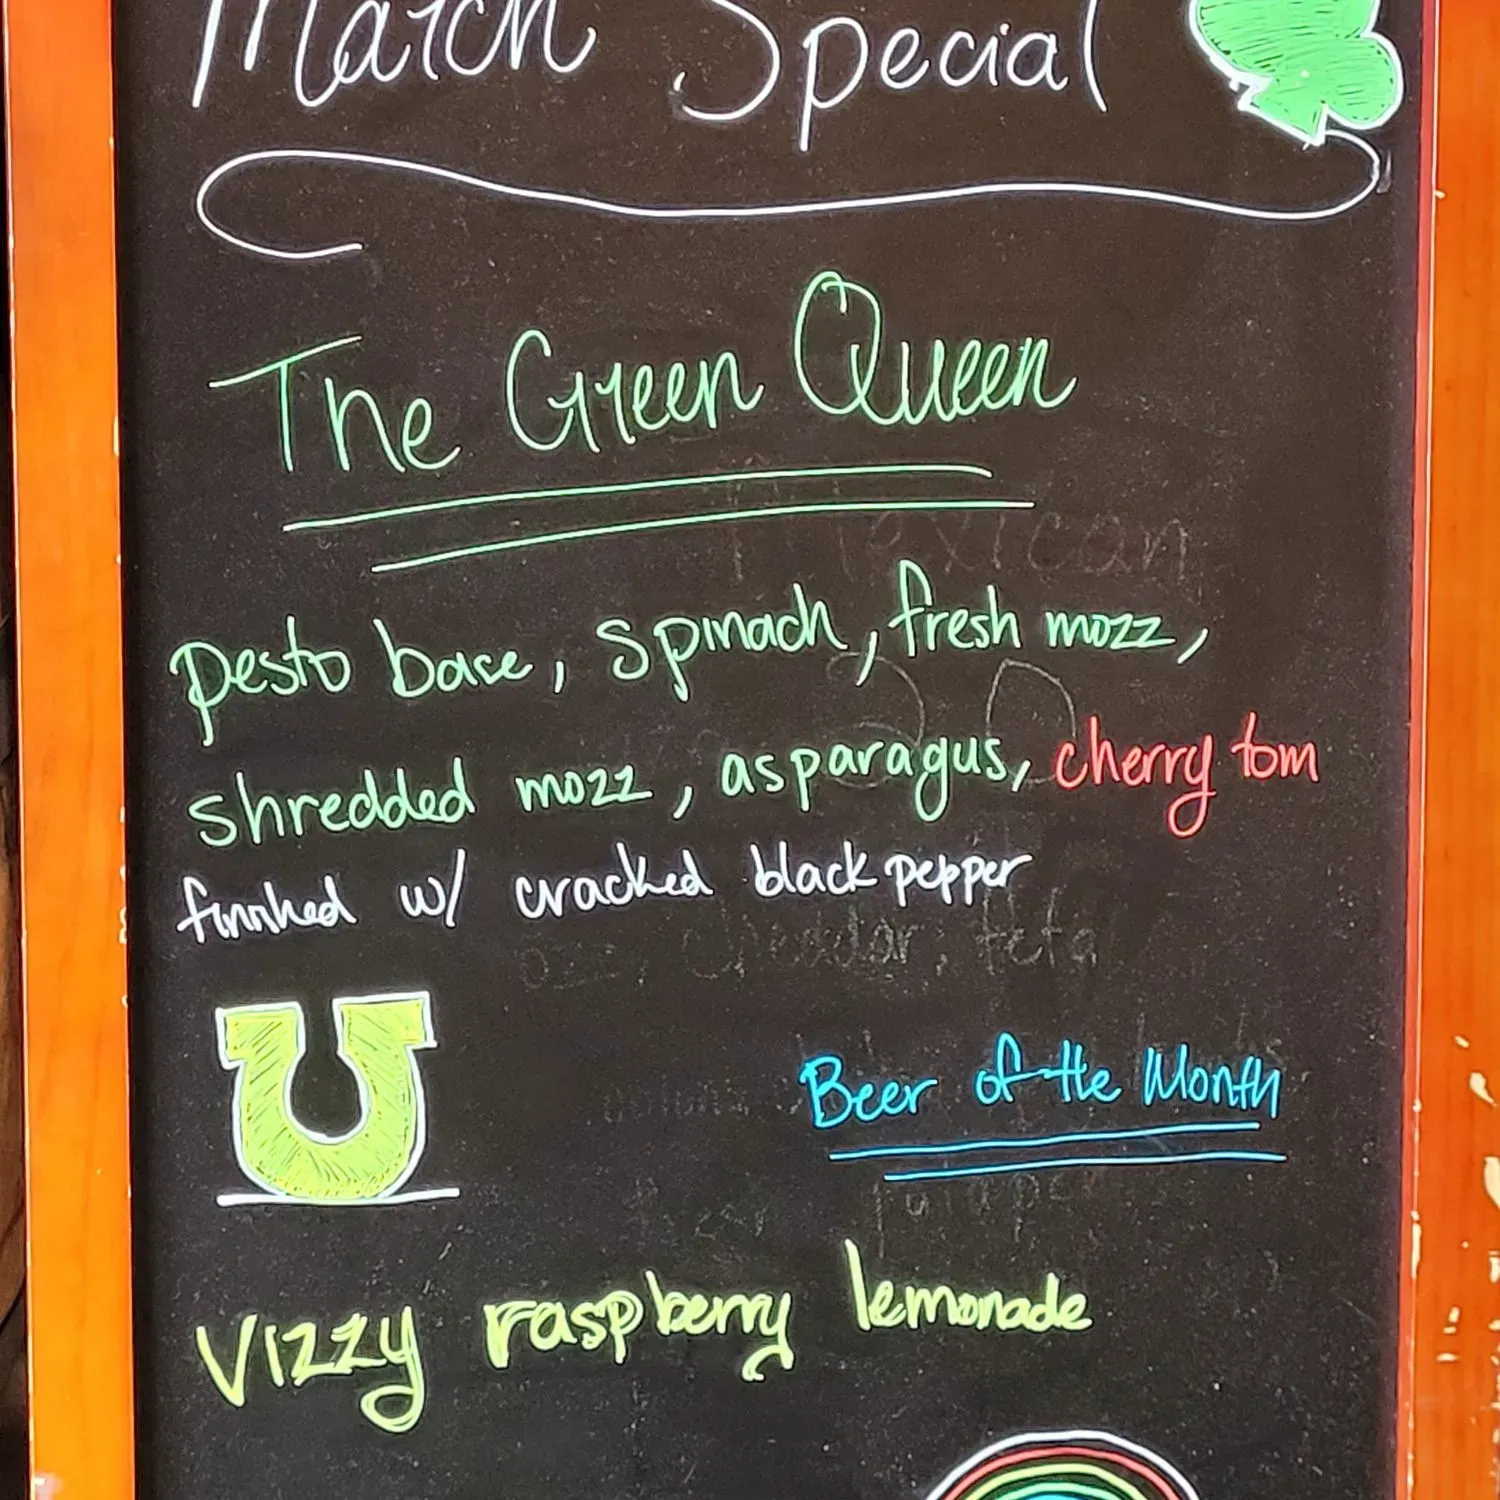 March Special
The Green Queen
pesto base, spinach, fresh mozz,
shredded mozz, asparagus, cherry tom
finished w/ cracked black pepper
Beer of the Month
Vizzy raspberry lemonade